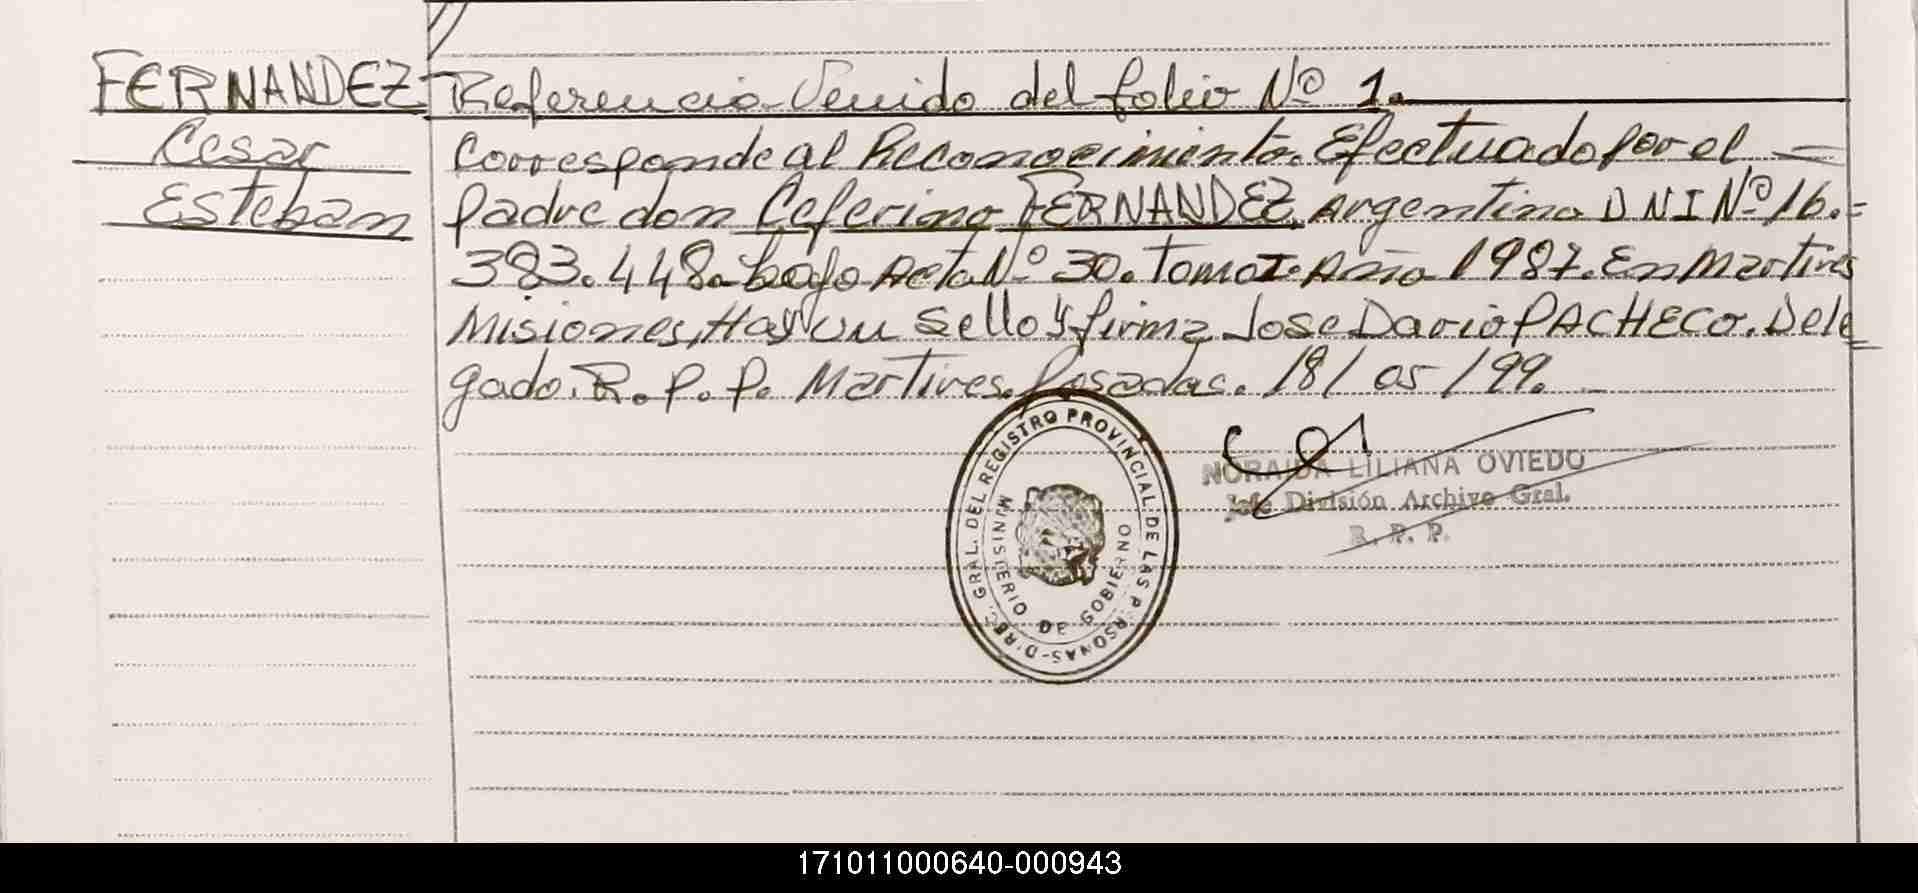 FERNANDEZ
Cesar
Esteban
Referencia Venido del folio Nº 1.
Corresponde al Reconocimiento. Efectuado por el
padre don Ceferino FERNANDEZ. Argentino DNI Nº 16.=
383.448. bajo Acta Nº 30. Tomo I. Año 1987. En Martires
Misiones, Hay un sello y firma Jose Dario PACHECO. Dele=
gado. R. P. P. Martires. Posadas. 18/05/99.
DIREC. GRAL. DEL REGISTRO PROVINCIAL DE LAS PERSONAS-
MINISTERIO DE GOBIERNO
NORAIDA LILIANA OVIEDO
Jefe División Archivo Gral.
R. P. P.
171011000640-000943